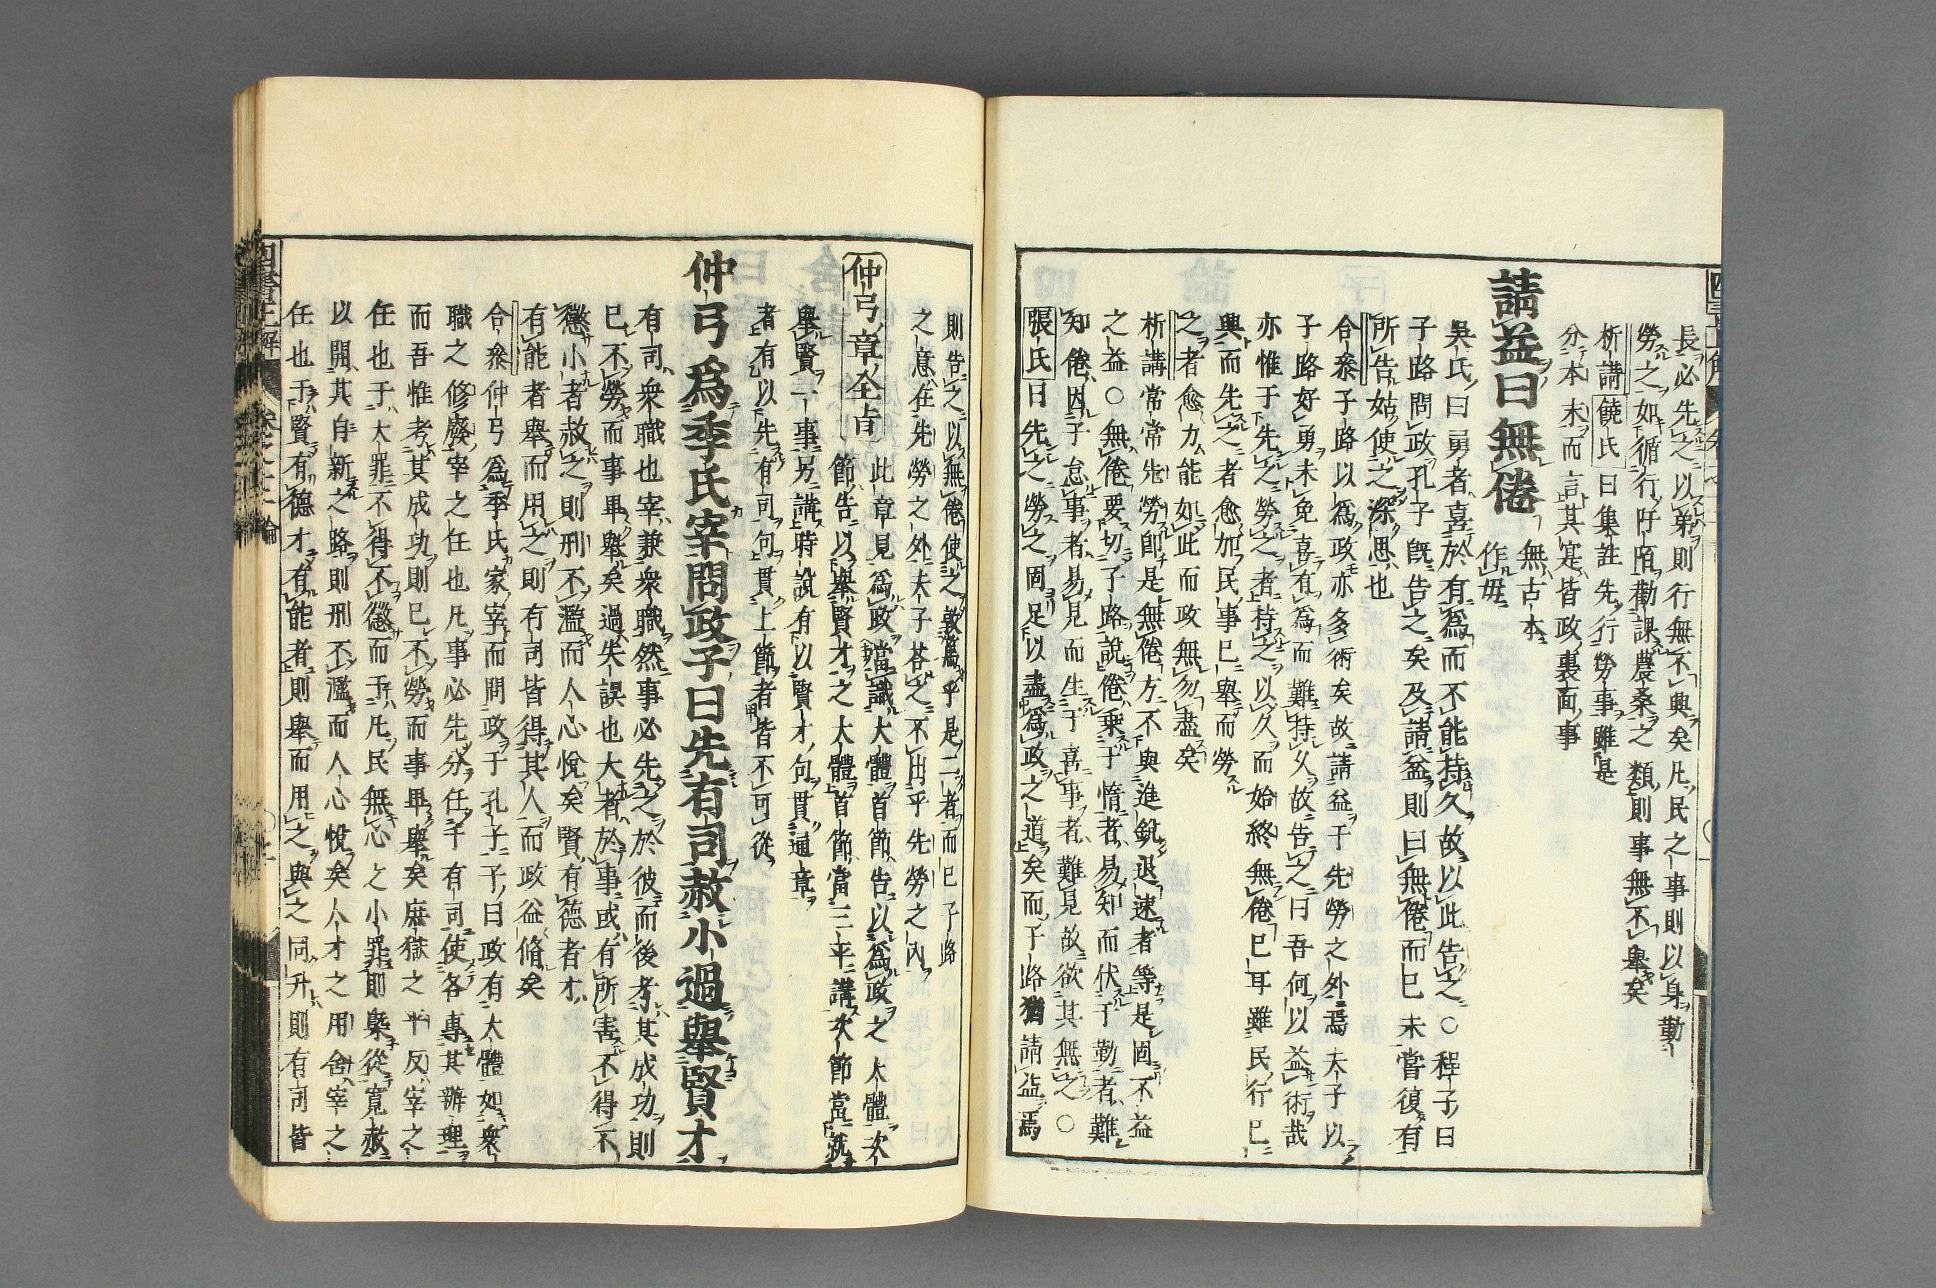 長必先之以弟則行無不興矣凡民之事則以身勤
勞之如循行阡陌勸課農桑之類則事無不舉矣
析講饒氏曰集註先行勞事雖是
分本末而言其寔皆政裏面事
請益曰無倦
無古本
作毋
吳氏曰勇者喜於有爲而不能持久故以此告之○程子曰
子路問政孔子旣告之矣及請益則曰無倦而已未嘗復有
所告姑使之深思也
合參子路以爲政亦多術矣故請益于先勞之外焉夫子以
子路好勇未免喜有爲而難持久故告之曰吾何以益術哉
亦惟于先之勞之者持之以久而始終無倦已耳雖民行已
興而先之者愈加民事已舉而勞
之者愈力能如此而政無勿盡矣
析講常常先勞卽是無倦方不與進銳退速者等是固不益
之益○無倦要切子路說倦乘于惰者易知而伏于勤者難
知倦因于怠事者易見而生于喜事者難見故欲其無之○
張氏曰先之勞之固足以盡爲政之道矣而子路猶請益焉
則告之以無倦使之敦焉乎是二者而已子路
之意在先勞之外夫子荅之不出乎先勞之內
仲弓章全旨
此章見爲政當識大體首節告以爲政之大體次
節告以舉賢才之大體首節當三平講次節當就
舉賢一事另講時說有以賢才句貫通章
者有以先有司句貫上節者皆不可從
仲弓爲季氏宰問政子曰先有司赦小過舉賢才
有司衆職也宰兼衆職然事必先之於彼而後考其成功則
己不勞而事畢舉矣過失誤也大者於事或有所害不得不
懲小者赦之則刑不濫而人心悅矣賢有德者才
有能者舉而用之則有司皆得其人而政益脩矣
合參仲弓爲季氏家宰而問政于孔子子曰政有大體如衆
職之修廢宰之任也凡事必先分任于有司使各專其辦理
而吾惟考其成功則已不勞而事畢舉矣庶獄之平反宰之
任也于大罪不得不懲而于凡民無心之小罪則槩從寬赦
以開其自新之路則刑不濫而人心悅矣人才之用舍宰之
任也于賢有德才有能者則舉而用之與之同升則有司皆